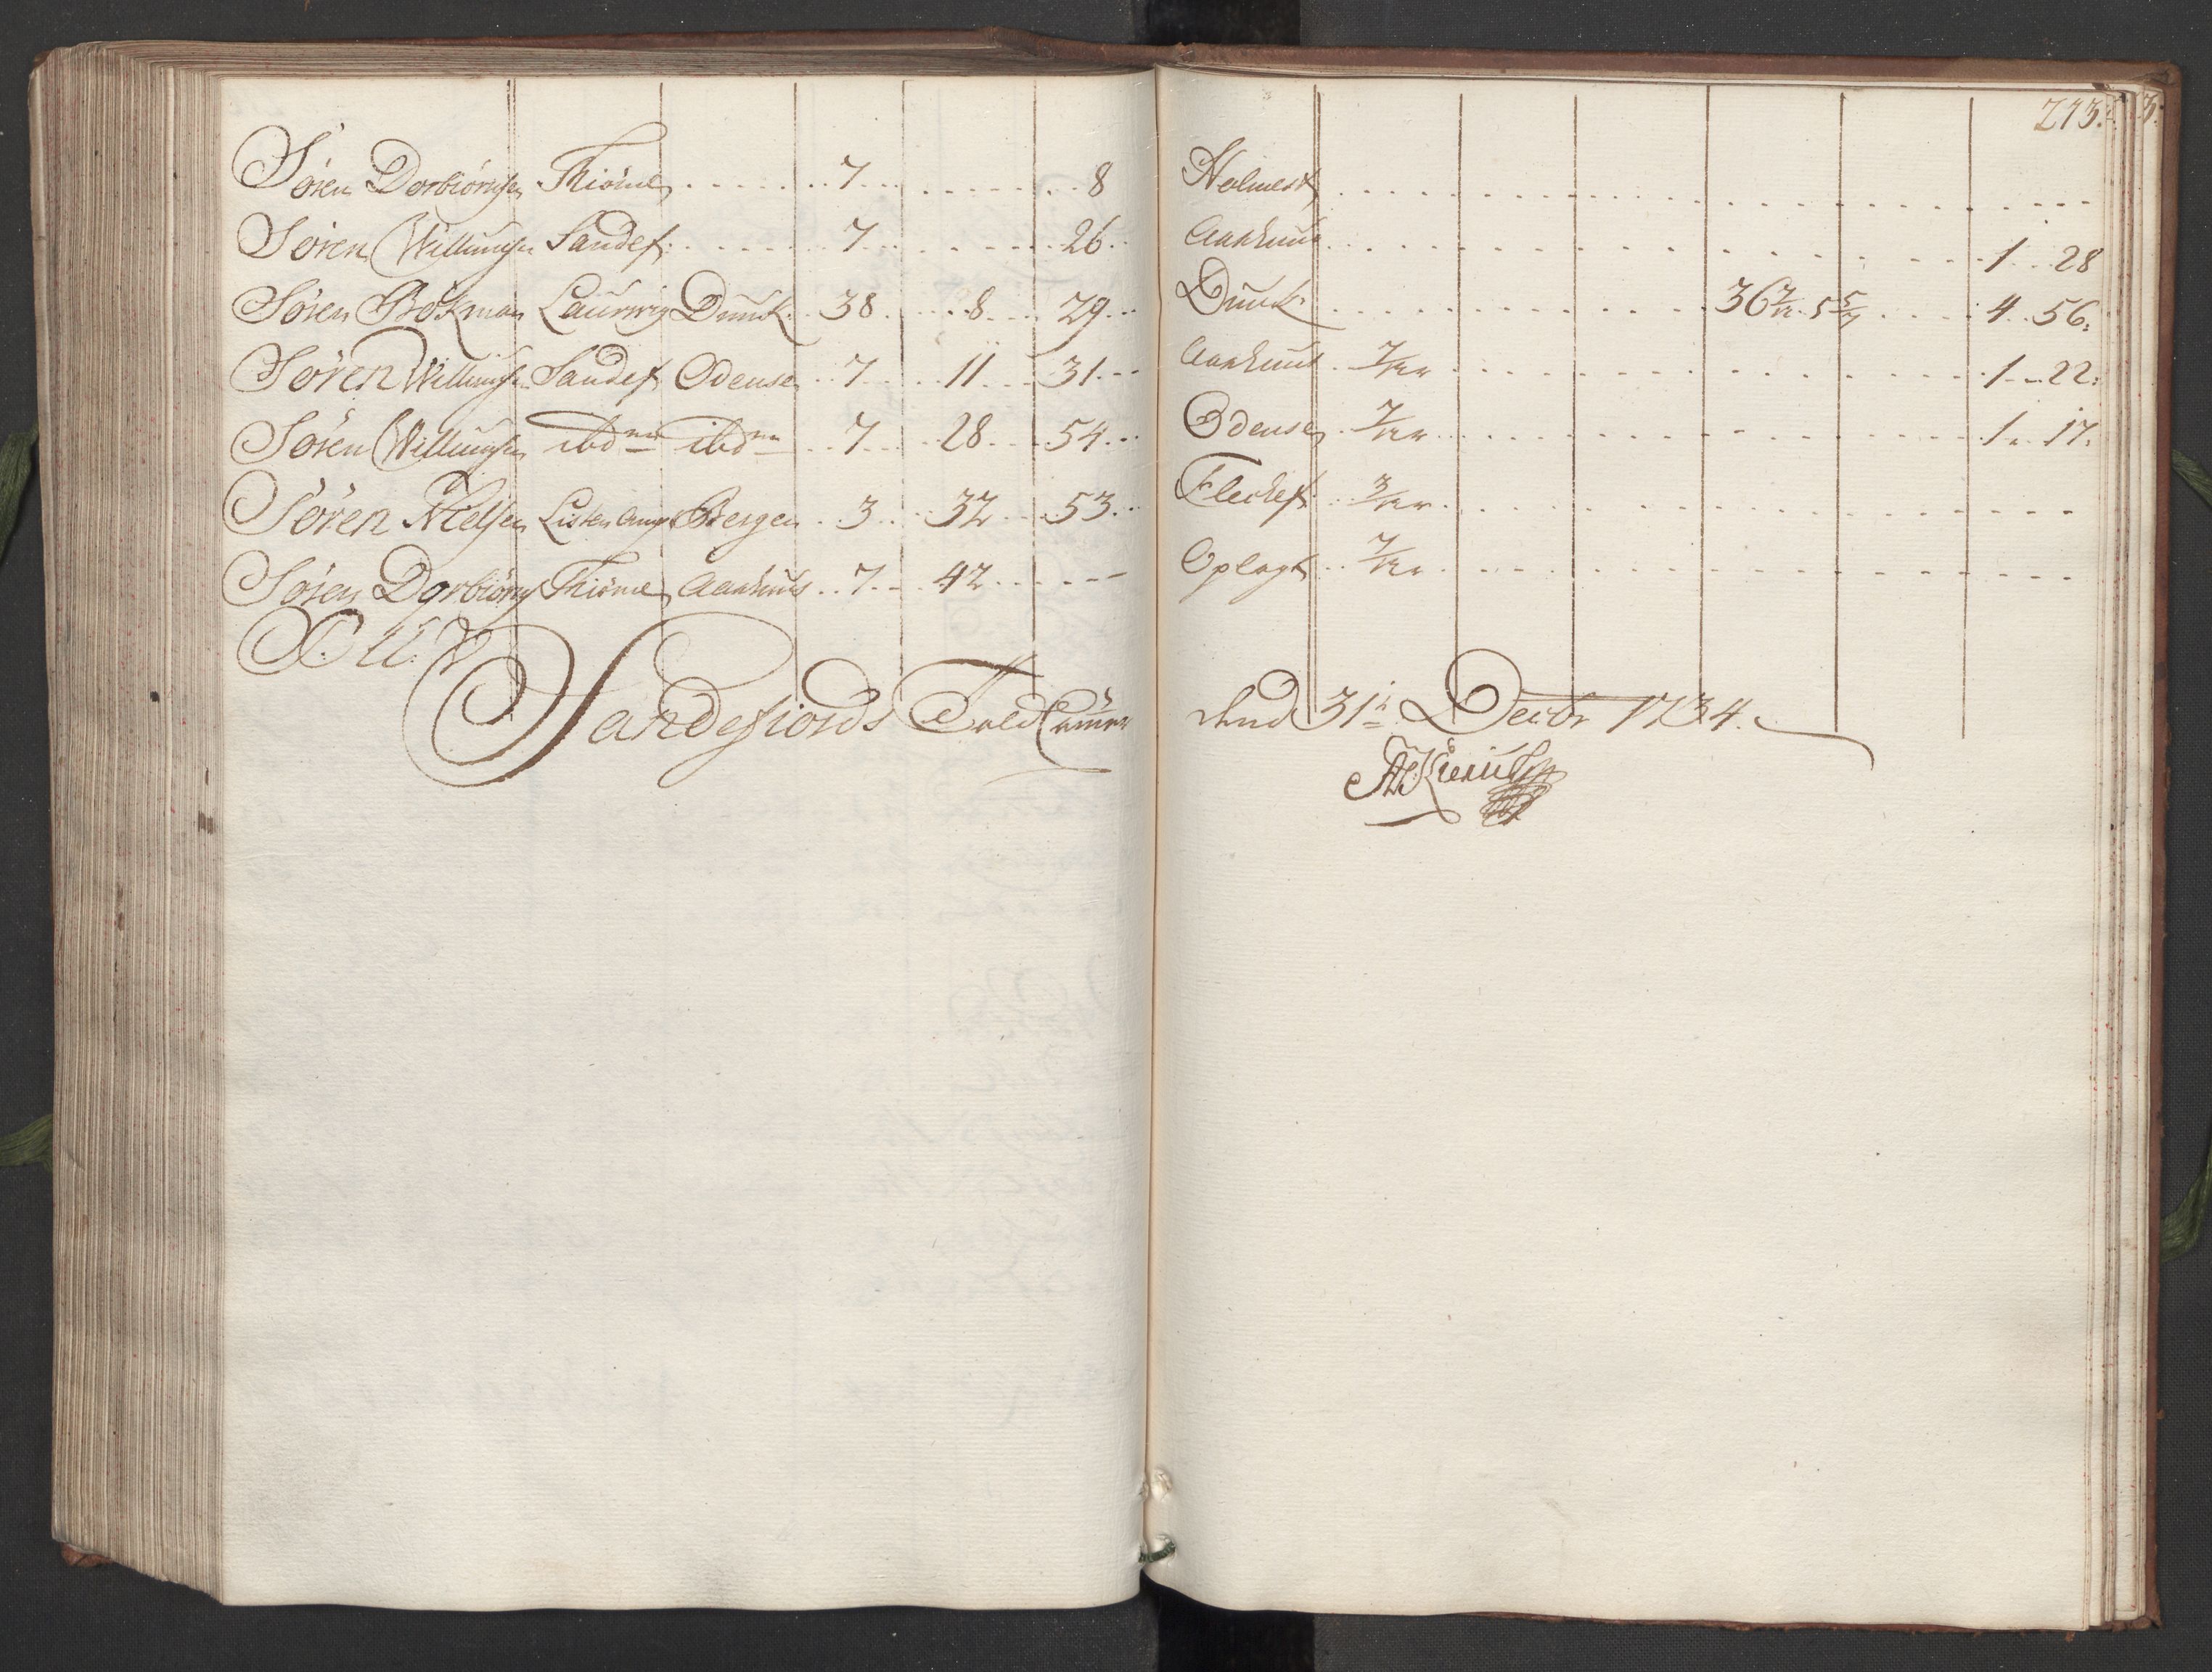 Søren Dorbiørnsen Thiøme 7 8
Søren Willumsen Sandef: 7 26
Søren Bökman Laurwig Dunck: 38 8 29
Søren Willumsen Sandef Odense 7 11 31
Søren Willumsen ibdm ibdm 7 28 54
Søren Nielsen Lister Bergen 3 32 53
Søren Dorbiørns Thiøme Aarhuus 7 42
T. U. W
Sandefiords Told
213.
Holmest
Aarhuus 1 28
Dunck: 36 7/12 5 5/7 4 56:
Aarhuus 7/12 1 22:
Odense 7/12 1 17:
Flechef: 3/12
Oplagt 7/12
dend 31t Decbr 1734.